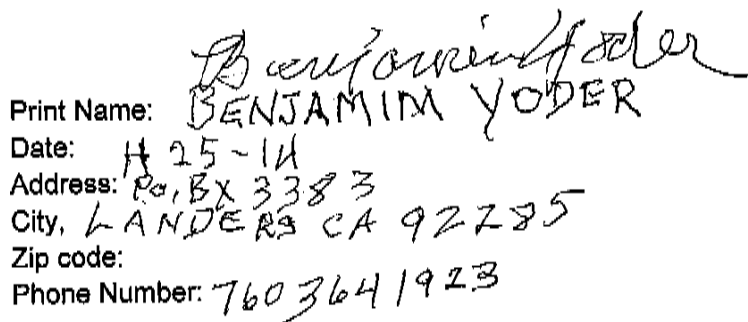 Benjamin Yoder
Print Name: BENJAMIM YODER
Date: 4 25-14
Address: Po, BX 3383
City, LANDERS CA 92285
Zip code:
Phone Number: 760 364 1923